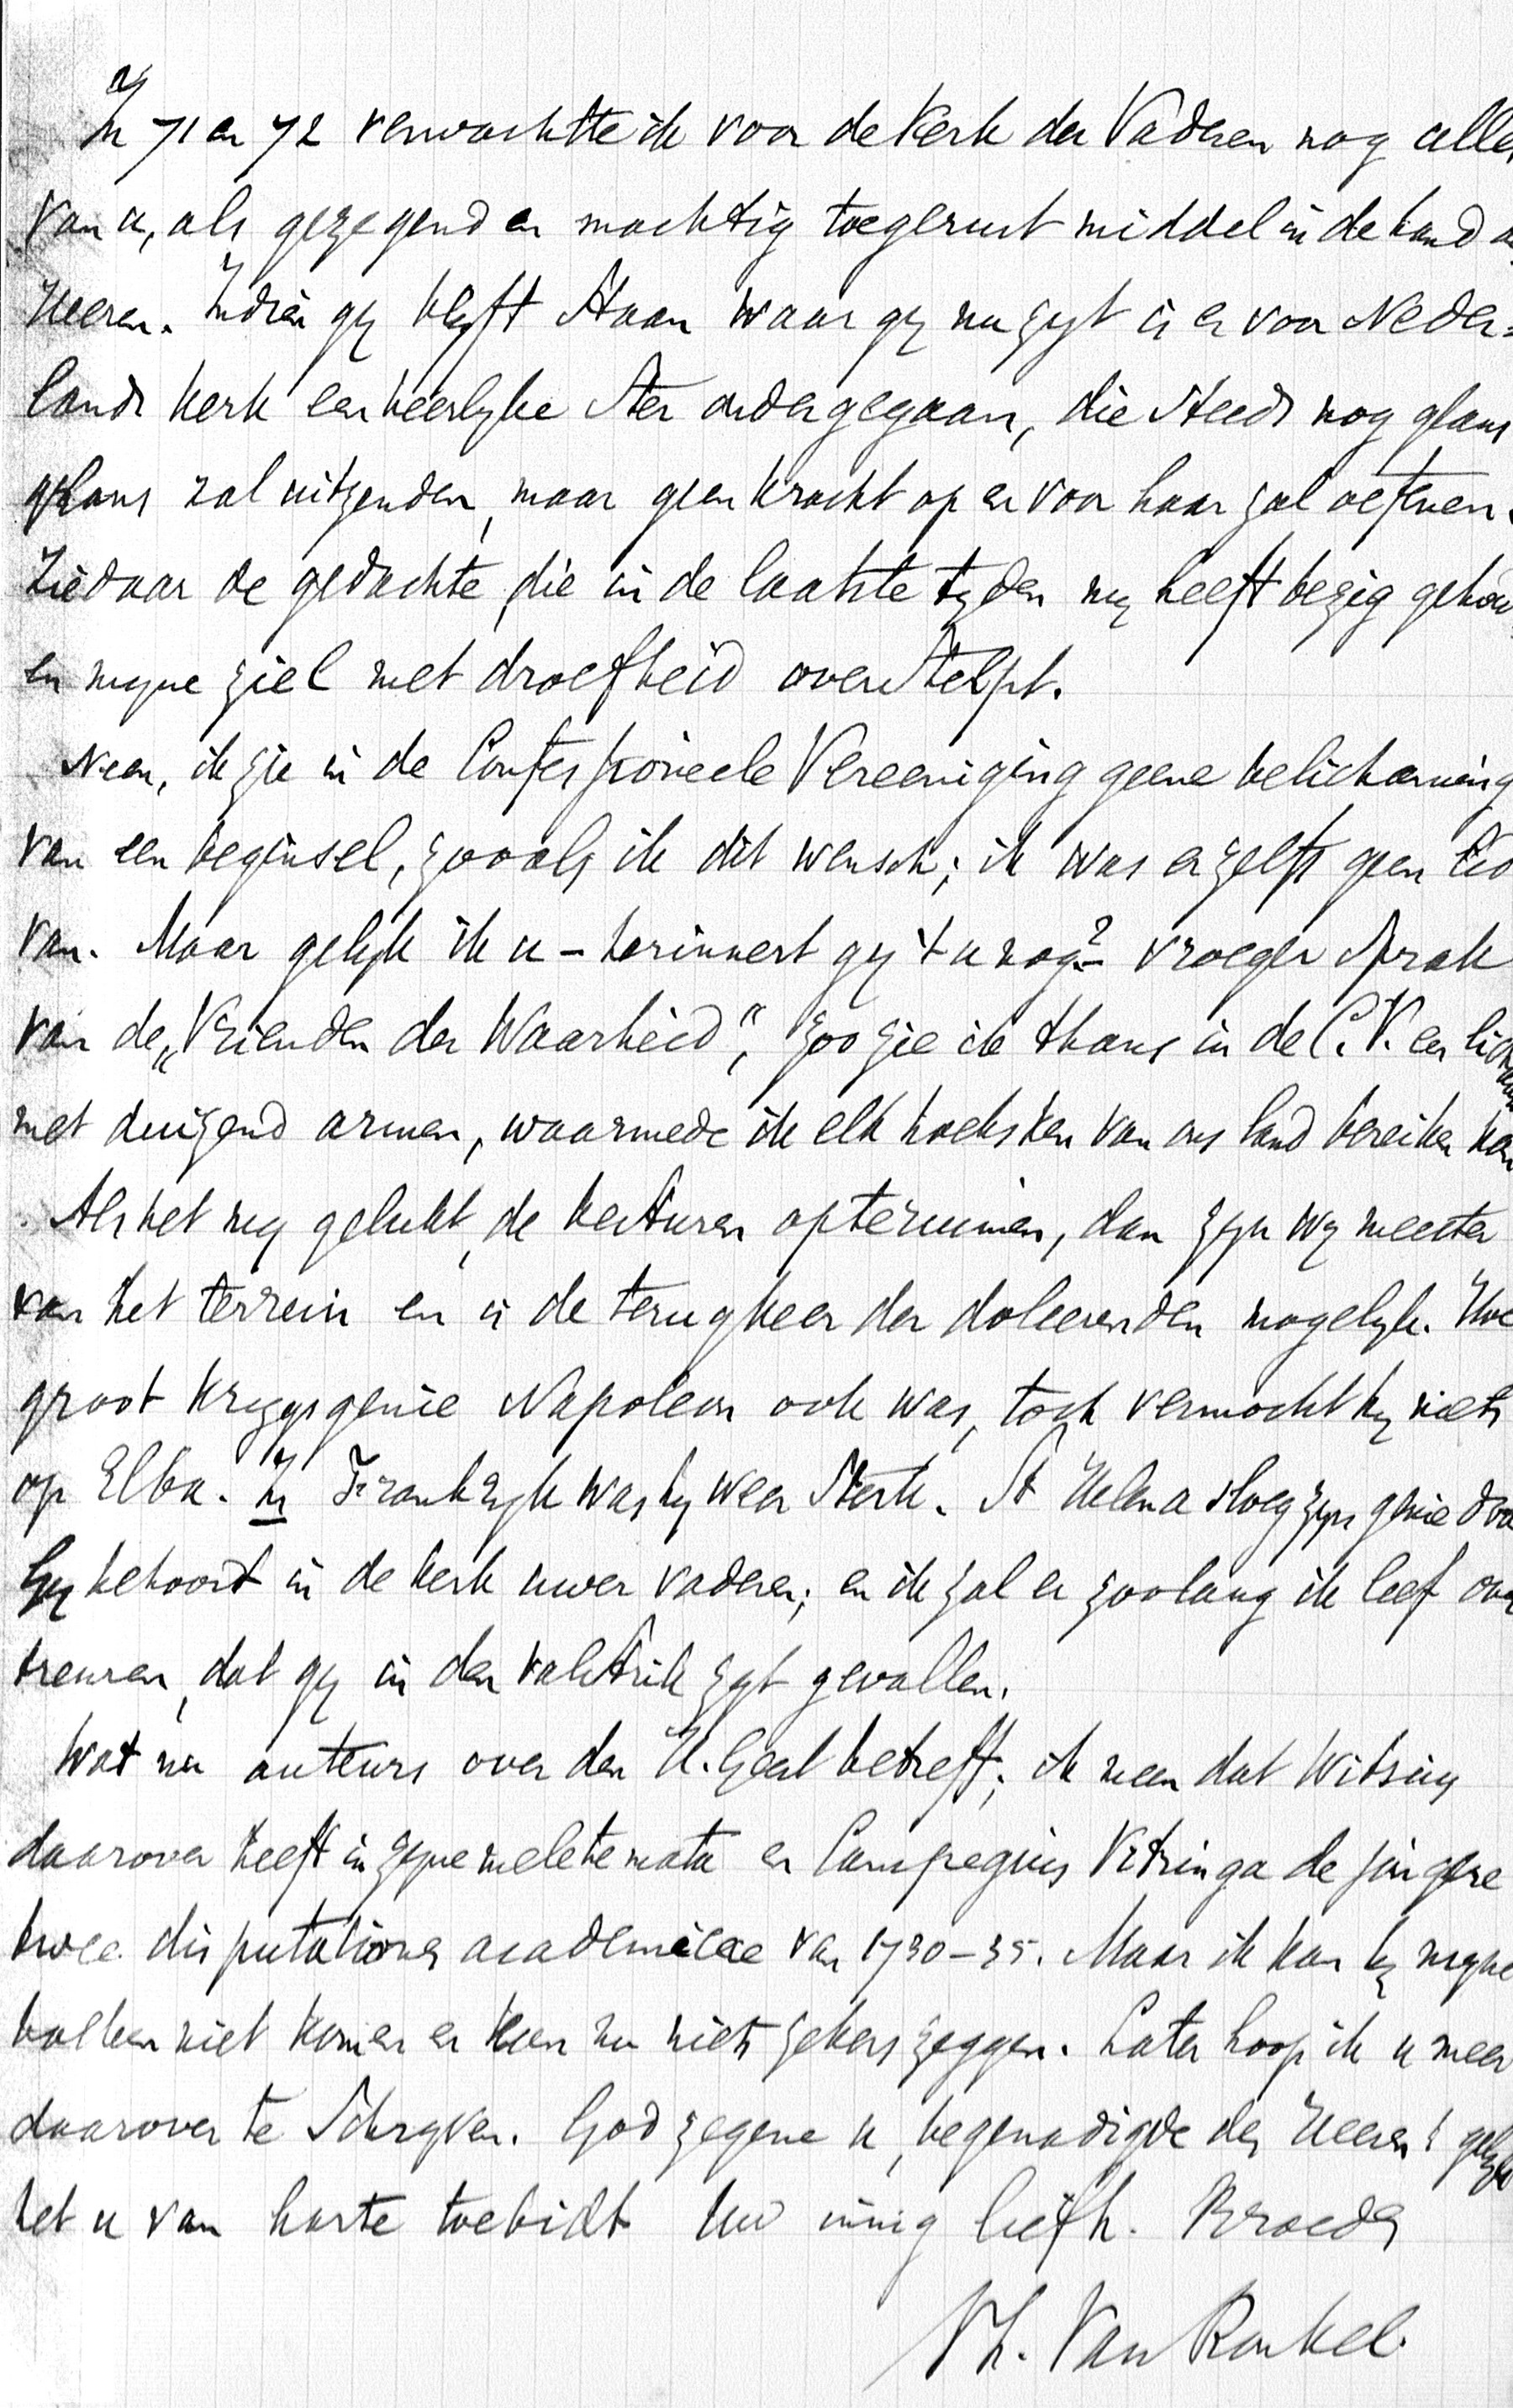 In 71 en 72 verwachtte ik voor de Kerk der Vaderen nog alles
van u, als gezegend en machtig toegerust middel in de hand des
Heeren. Indien gij blijft staan waar gij nu zijt is er voor Neder=
lands kerk een heerlijke ster ondergegaan, die steeds nog glans
glans zal uitzenden, maar geen kracht op en voor haar zal oefenen.
Ziedaar de gedachte, die in de laatste tijden mij heeft bezig gehou
en mijne ziel met droefheid overstelpt.
Neen, ik zie in de Confessioneele Vereeniging geene belichaming
van een beginsel, zooals ik dit wensch; ik was er zelfs geen lid
van. Maar gelijk ik u – herinnert gij 't u nog? – vroeger sprak
van de „Vrienden der Waarheid", zoo zie ik thans in de C.V. een lichaam
met duizend armen, waarmede ik elk hoeksken van ons land bereiken kan
Als het mij gelukt, de besturen opteruimen, dan zijn wij meester
van het terrein en is de terugkeer der doleerenden mogelijk. Hoe
groot krijgsgenie Napoleon ook was, toch vermocht hij niets
op Elba. In Frankrijk was hij weer sterk. St Helena sloeg zijn genie dood
Gij behoort in de kerk uwer vaderen; en ik zal er zoolang ik leef over
treuren, dat gij in den valstrik zijt gevallen.
Wat nu auteurs over den H. Geest betreft; ik meen dat Witsius
daarover heeft in zijne meletemata en Campegius Vitringa de jongere
twee disputationes academicae van 1730–35. Maar ik kan bij mijne
boeken niet komen en kan nu niets zekers zeggen. Later hoop ik u meer
daarover te schrijven. God zegene u, begenadigde des Heeren! gelijk
het u van harte toebidt Uw innig liefh. Broeder
Ph. Van Ronkel.